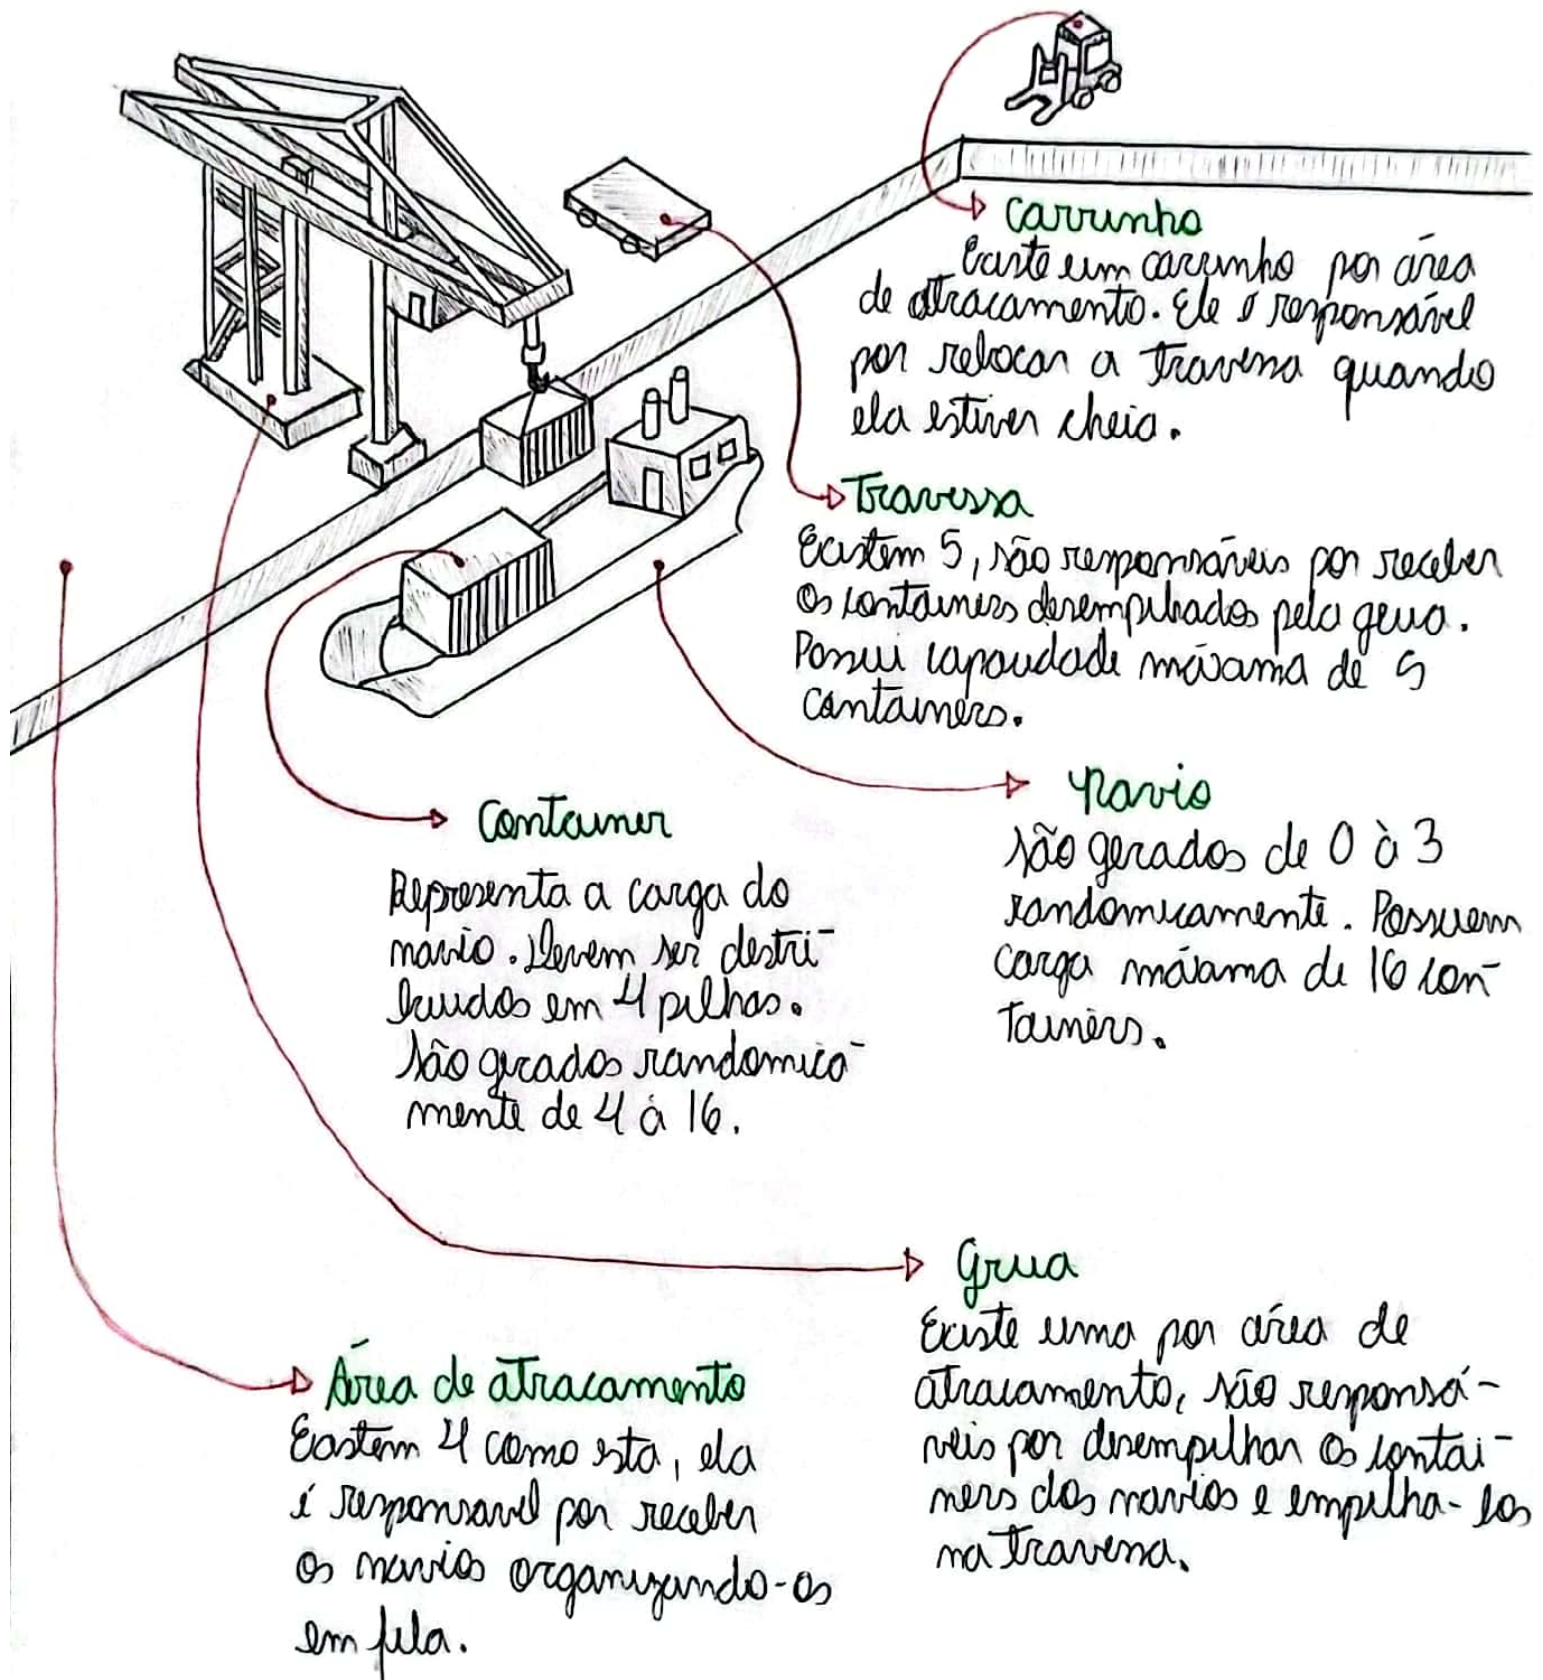 Carrinho
Existe um carrinho por área
de atracamento. Ele é responsável
por relocar a travessa quando
ela estiver cheia.
Travessa
Existem 5, são responsáveis por receber
os containers desempilhados pela grua.
Possui capacidade máxima de 5
containers.
Navio
São gerados de 0 à 3
randomicamente. Possuem
carga máxima de 16 con-
tainers.
Container
Representa a carga do
navio. Devem ser distri-
buidos em 4 pilhas.
São gerados randomica-
mente de 4 à 16.
Grua
Existe uma por área de
atracamento, são responsá-
veis por desempilhar os contai-
ners dos navios e empilha-los
na travessa.
Área de atracamento
Existem 4 como esta, ela
é responsavel por receber
os navios organizando-os
em fila.